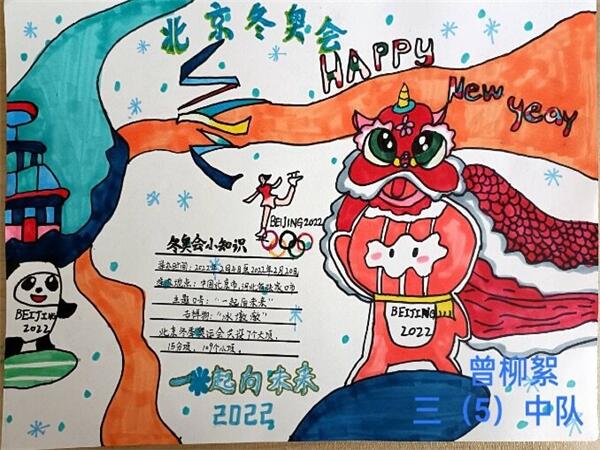 北京冬奥会
HAPPY
New yeay
BEIJING2022
冬奥会小知识
举办时间:2022年2月4日至2022年2月20日
中国北京市,河北省张家口市
主题口号:"一起向未来"
吉祥物:"冰墩墩"
北京冬季奥运会共设7个大项,
15分项,109个小项。
一起向未来
2022
BEIJING
2022
BEIJING
2022
曾柳絮
三(5)中队